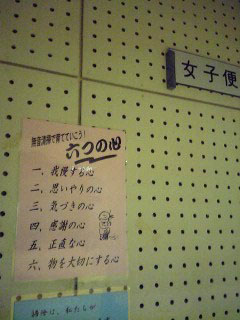 女子便
無言清掃で育てていこう!
六つの心
一、我慢する心
二、思いやりの心
三、気づきの心
四、感謝の心
五、正直な心
六、物を大切にする心
清掃は、私たちが